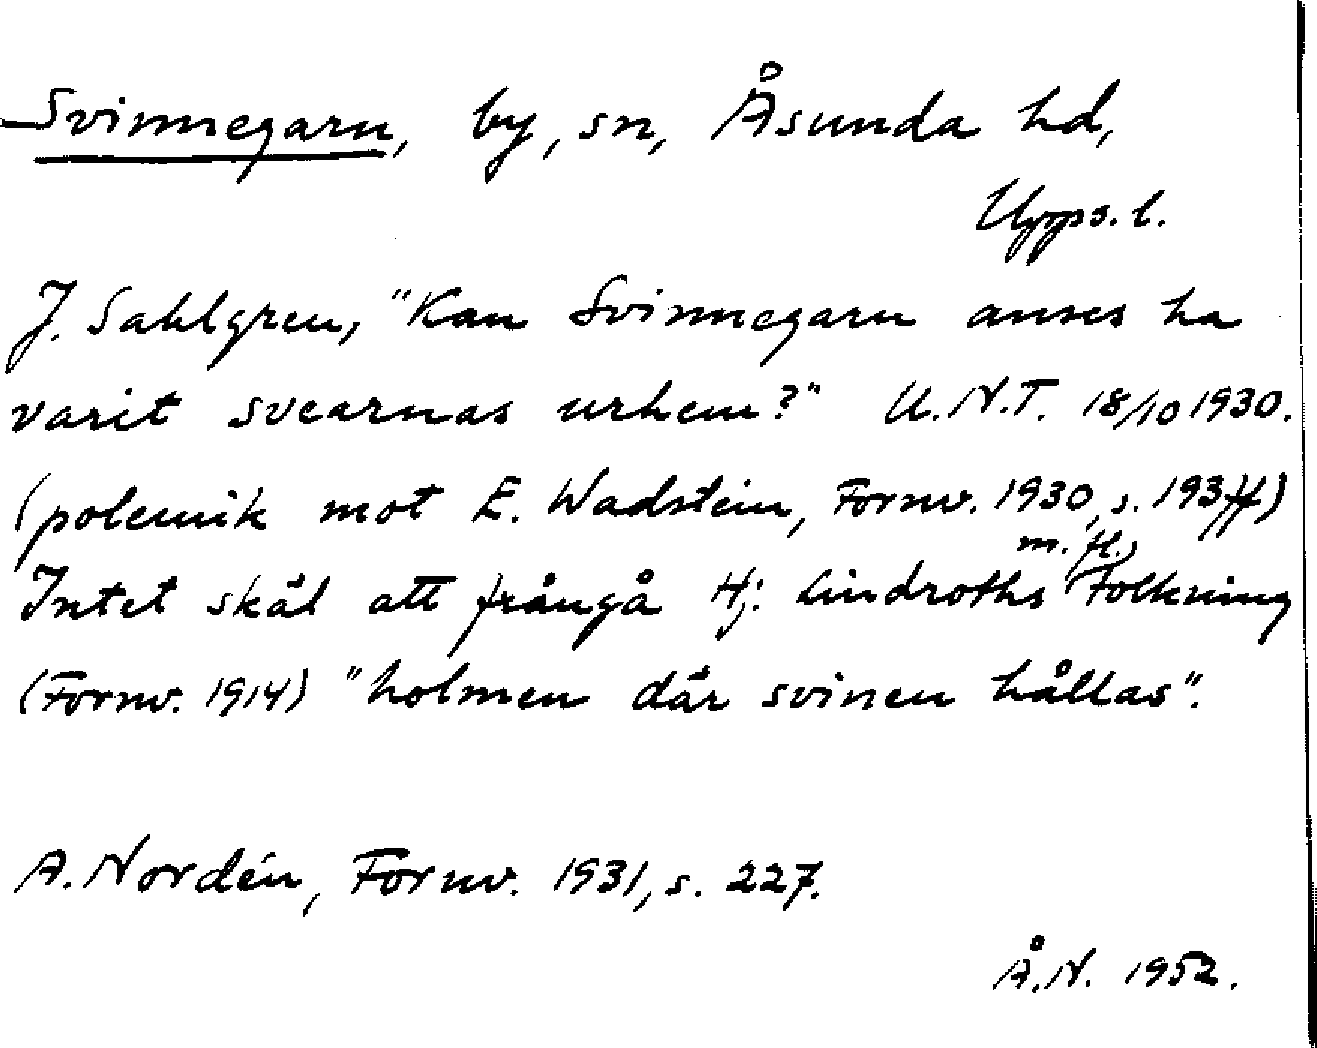 Svinnegarn, by, sn, Åsunda hd,
Upps. l.
J. Sahlgren, "Kan Svinnegarn anses ha
varit svearnas urhem?" U.N.T. 18/10 1930.
(polemik mot E. Wadstein, Fornv. 1930, s. 193ff)
m. fl.
Intet skäl att frångå Hj. Lindroths tolkning
(Fornv. 1914) "holmen där svinen hållas".
A. Nordén, Fornv. 1931, s. 227.
Å.N. 1952.